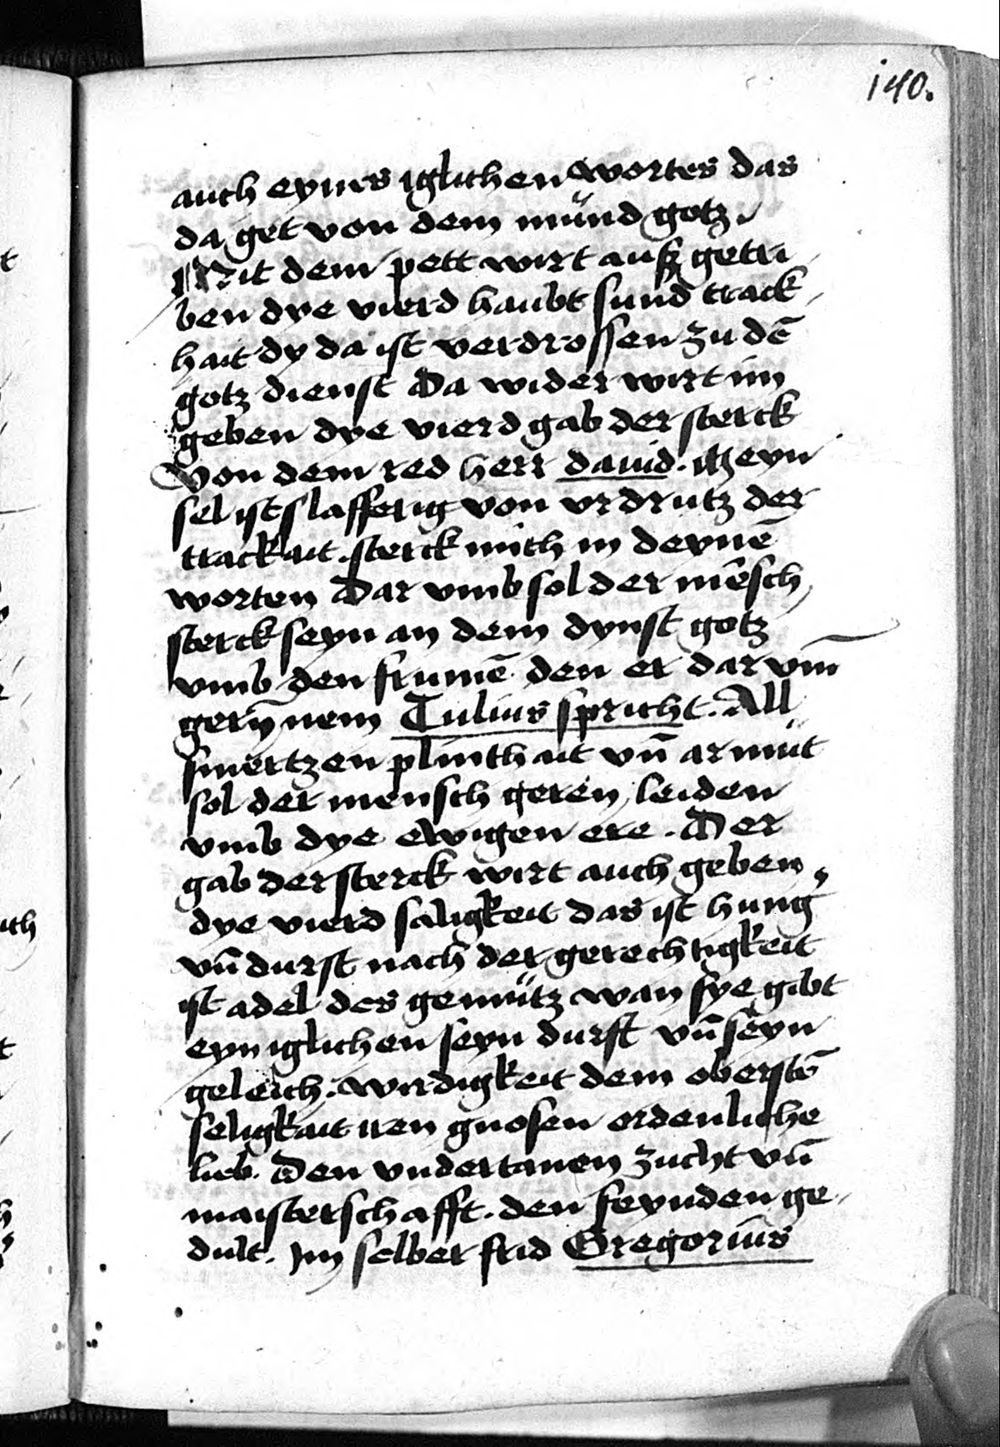 140.
auch eynes iglichen wortes das
da get von dem mund gotz.
Mit dem pett wirt auß getri
ben dye vierd haubt sund track
hait dy da ist verdrossen zu dē
gotz dienst Da wider wirt im
geben dye vierd gab der sterck
Von dem red herr dauid. Meyn
sel ist slafferig von vrdrutz der
trackait. sterck mich in deynē
worten Dar vmb sol der mēsch
sterck seyn an dem dynst gotz
vmb den frumē den er dar vm̄
Tulius spricht. All
smertzen plinthait vn̄ armüt
sol der mensch geren leiden
vmb dye ewigen ere. Der
gab der sterck wirt auch geben
dye vierd saligkeit das ist hung
vn̄ durst nach der gerechtigkeit
ist adel des gemütz wan sye gibt
eyn iglichen seyn durft vn̄ seyn
geleich. wirdigkeit dem oberstē
seligkait iren gnosen ordenliche
lieb. Den vndertanen zucht vn̄
maisterschafft. den feynden ge
dult. Im selber frid Gregorius